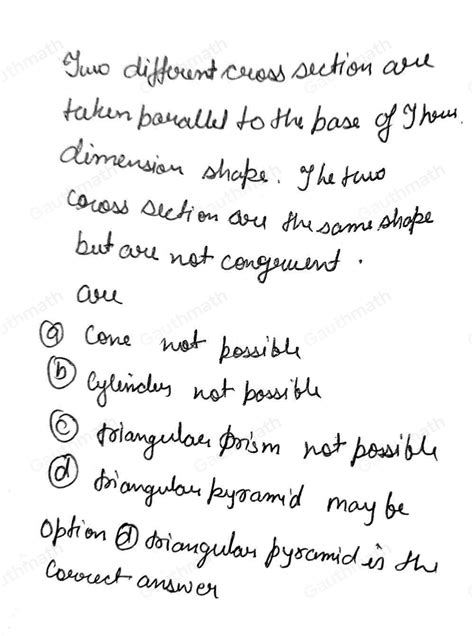 Two different cross section are
taken parallel to the base of Three
dimension shape. The two
cross section are the same shape
but are not congruent.
are
ⓐ Cone not possible
ⓑ Cylinder not possible
ⓒ triangular prism not possible
ⓓ triangular pyramid may be
option ⓓ triangular pyramid is the
correct answer
Gauthmath